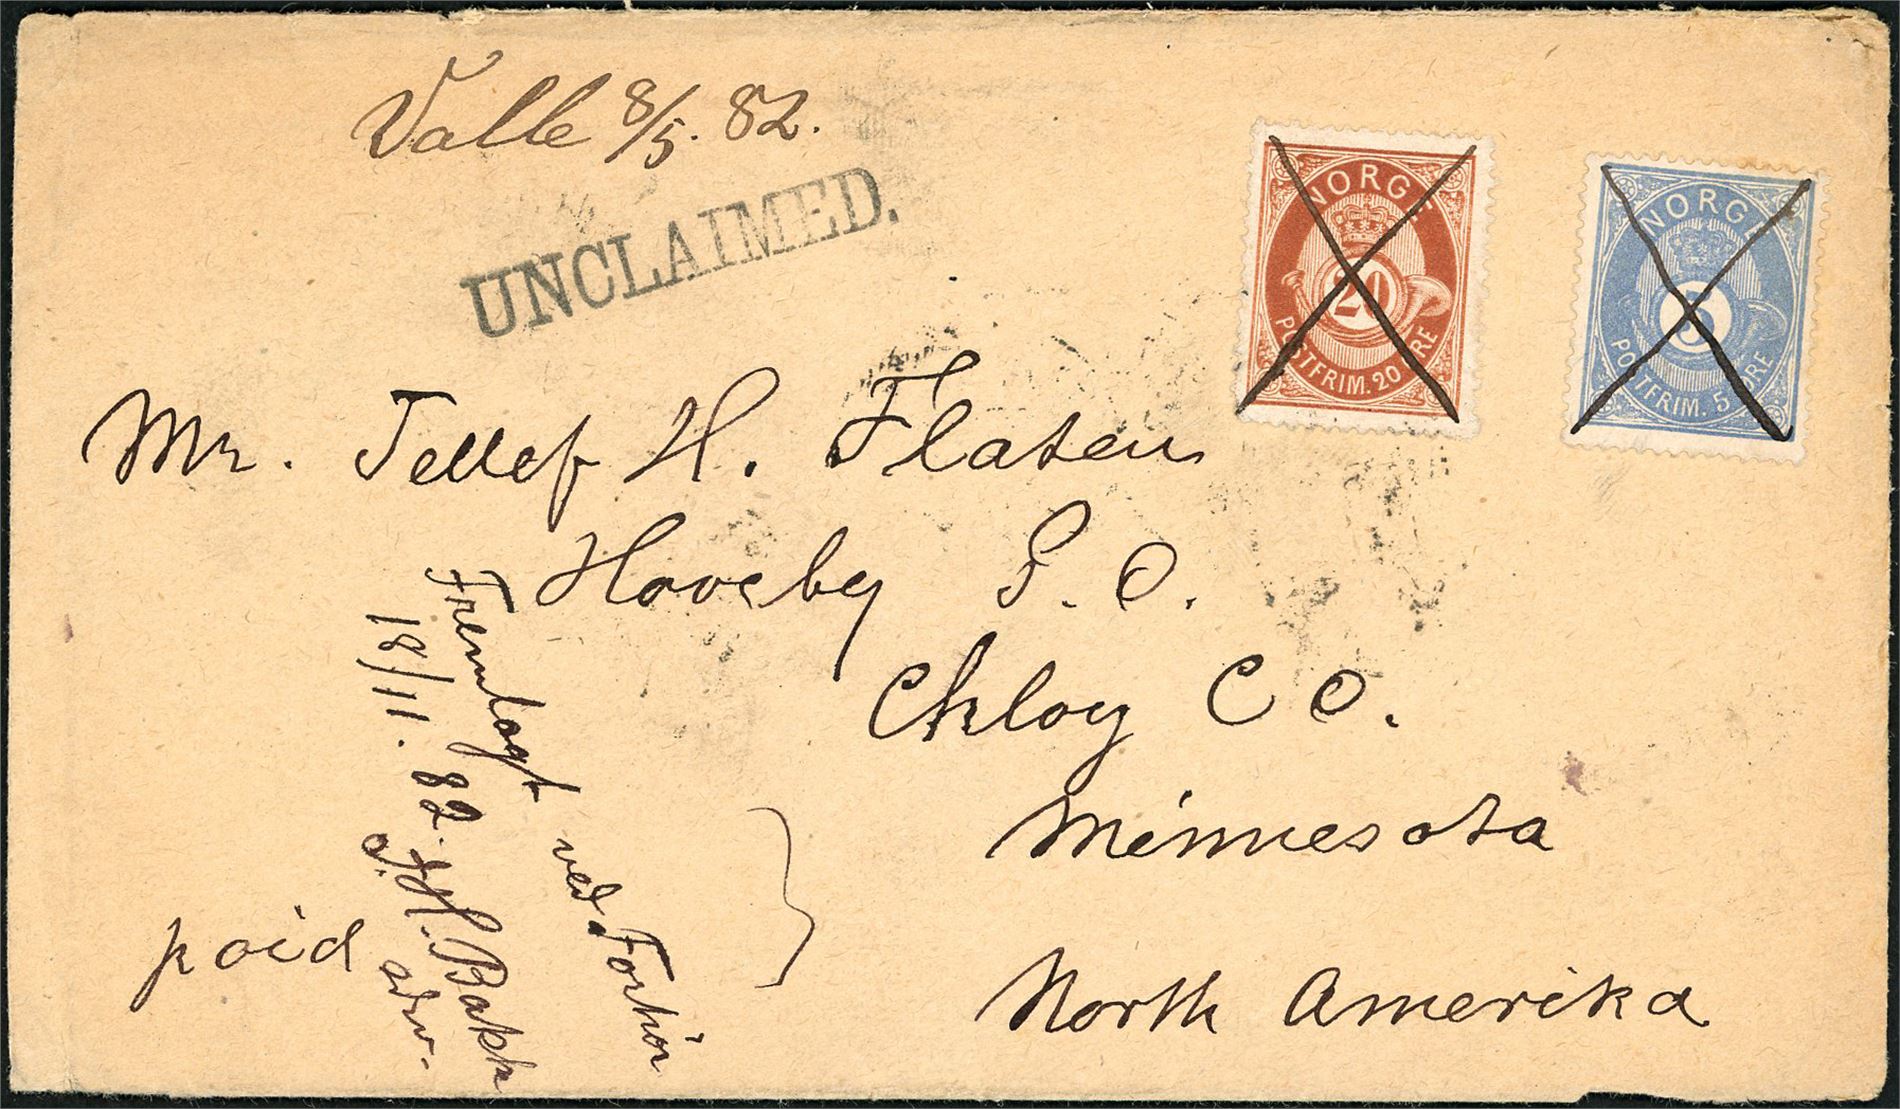 Valle 8/5. 82.
UNCLAIMED.
NORGE
20
POSTFRIM. 20 ØRE
NORGE
5
POSTFRIM. 5 ØRE
Mr. Tellef H. Flaten
Hovsby P. O.
Chloy C O.
Minnesota
North Amerika
paid
Fremlagt ved Forhør
18/11. 82. H. Bakke